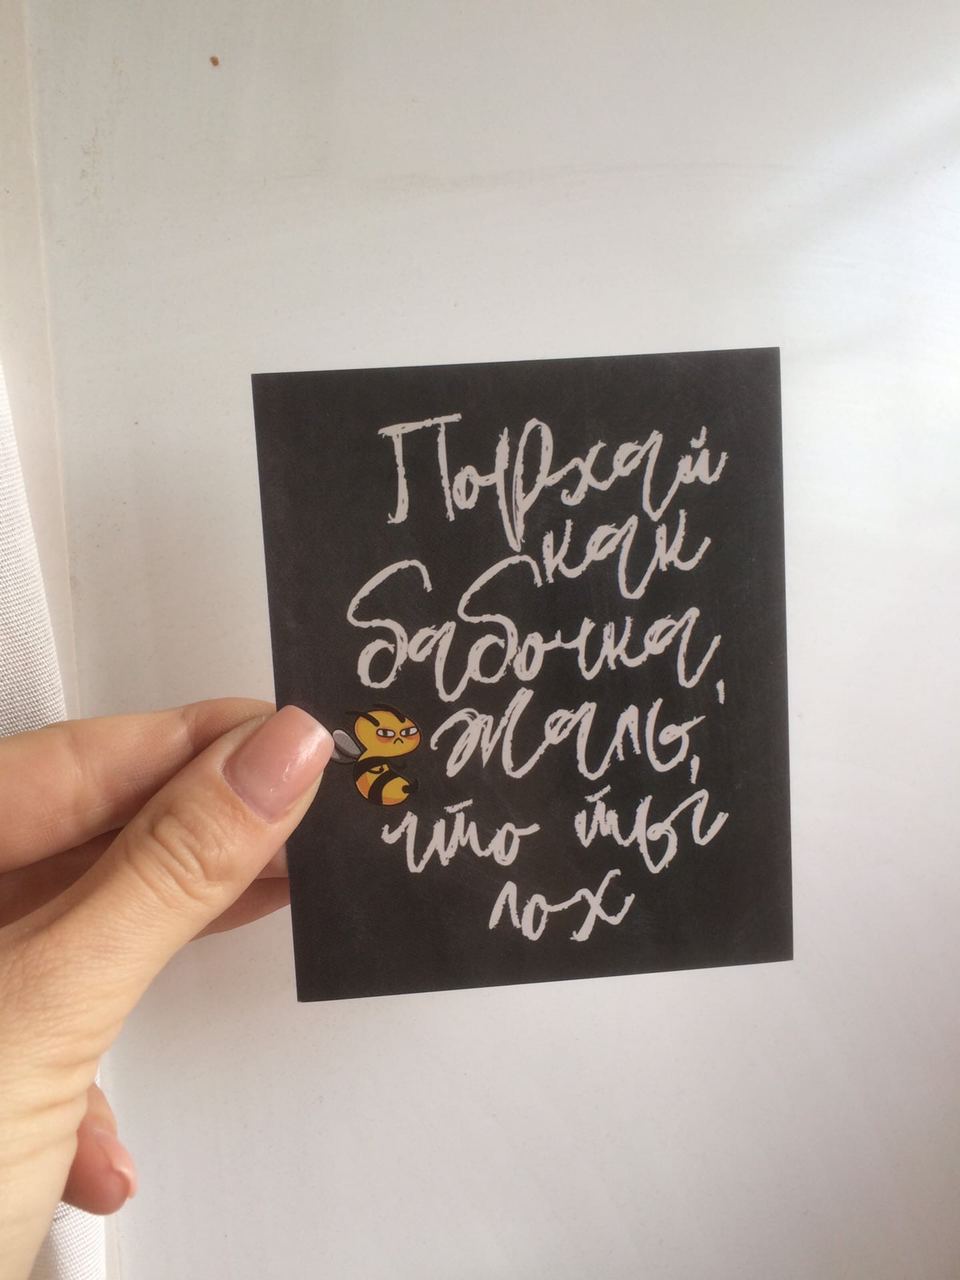 Порхай
как
бабочка,
жаль,
что ты
лох